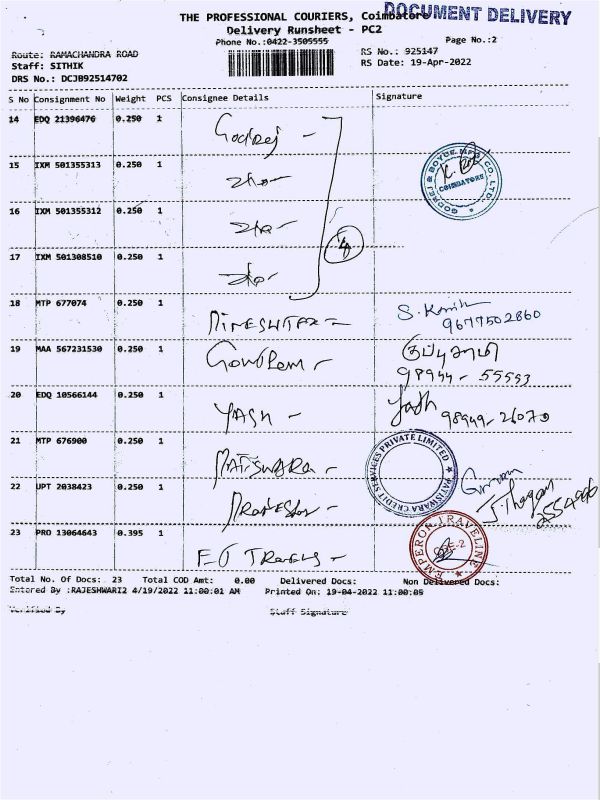 THE PROFESSIONAL COURIERS, Coimbatore
DOCUMENT DELIVERY
Delivery Runsheet - PC2
Phone No.:0422-3505555
Page No.:2
Route: RAMACHANDRA ROAD
RS No.: 925147
Staff: SITHIK
RS Date: 19-Apr-2022
DRS No.: DCJB92514702
S No Consignment No Weight PCS Consignee Details Signature
14 EDQ 21396476 0.250 1 Godrej
15 IXM 501355313 0.250 1
GODREJ & BOYCE MFG CO. LTD. COIMBATORE
16 IXM 501355312 0.250 1
4
17 IXM 501308510 0.250 1
18 MTP 677074 0.250 1 S. 9677502860
19 MAA 567231530 0.250 1 Gowtham குப்புசாமி
98944 - 55593
20 EDQ 10566144 0.250 1 YASH Yash 98949-26070
21 MTP 676900 0.250 1
CREDIT SERVICES PRIVATE LIMITED
22 UPT 2038423 0.250 1
23 PRO 13064643 0.395 1
EMPEROR TRAVELINE CBE-2
Total No. Of Docs: 23 Total COD Amt: 0.00 Delivered Docs: Non Delivered Docs:
Entered By :RAJESHWARI2 4/19/2022 11:00:01 AM Printed On: 19-04-2022 11:00:05
Verified By Staff Signature